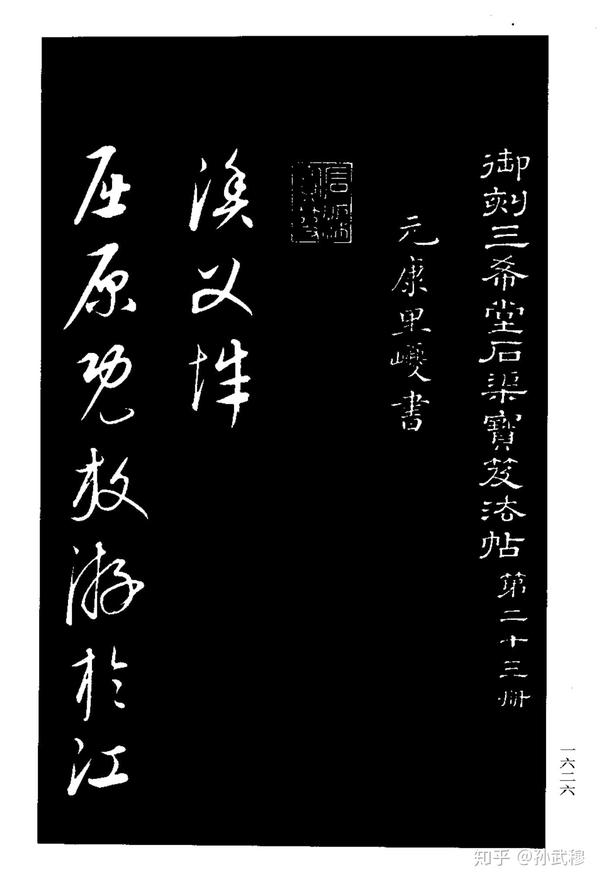 御刻三希堂石渠寶笈法帖 第二十三册
元康里巎書
漁父辭
屈原既放游於江
一六二六
知乎 @孙武穆